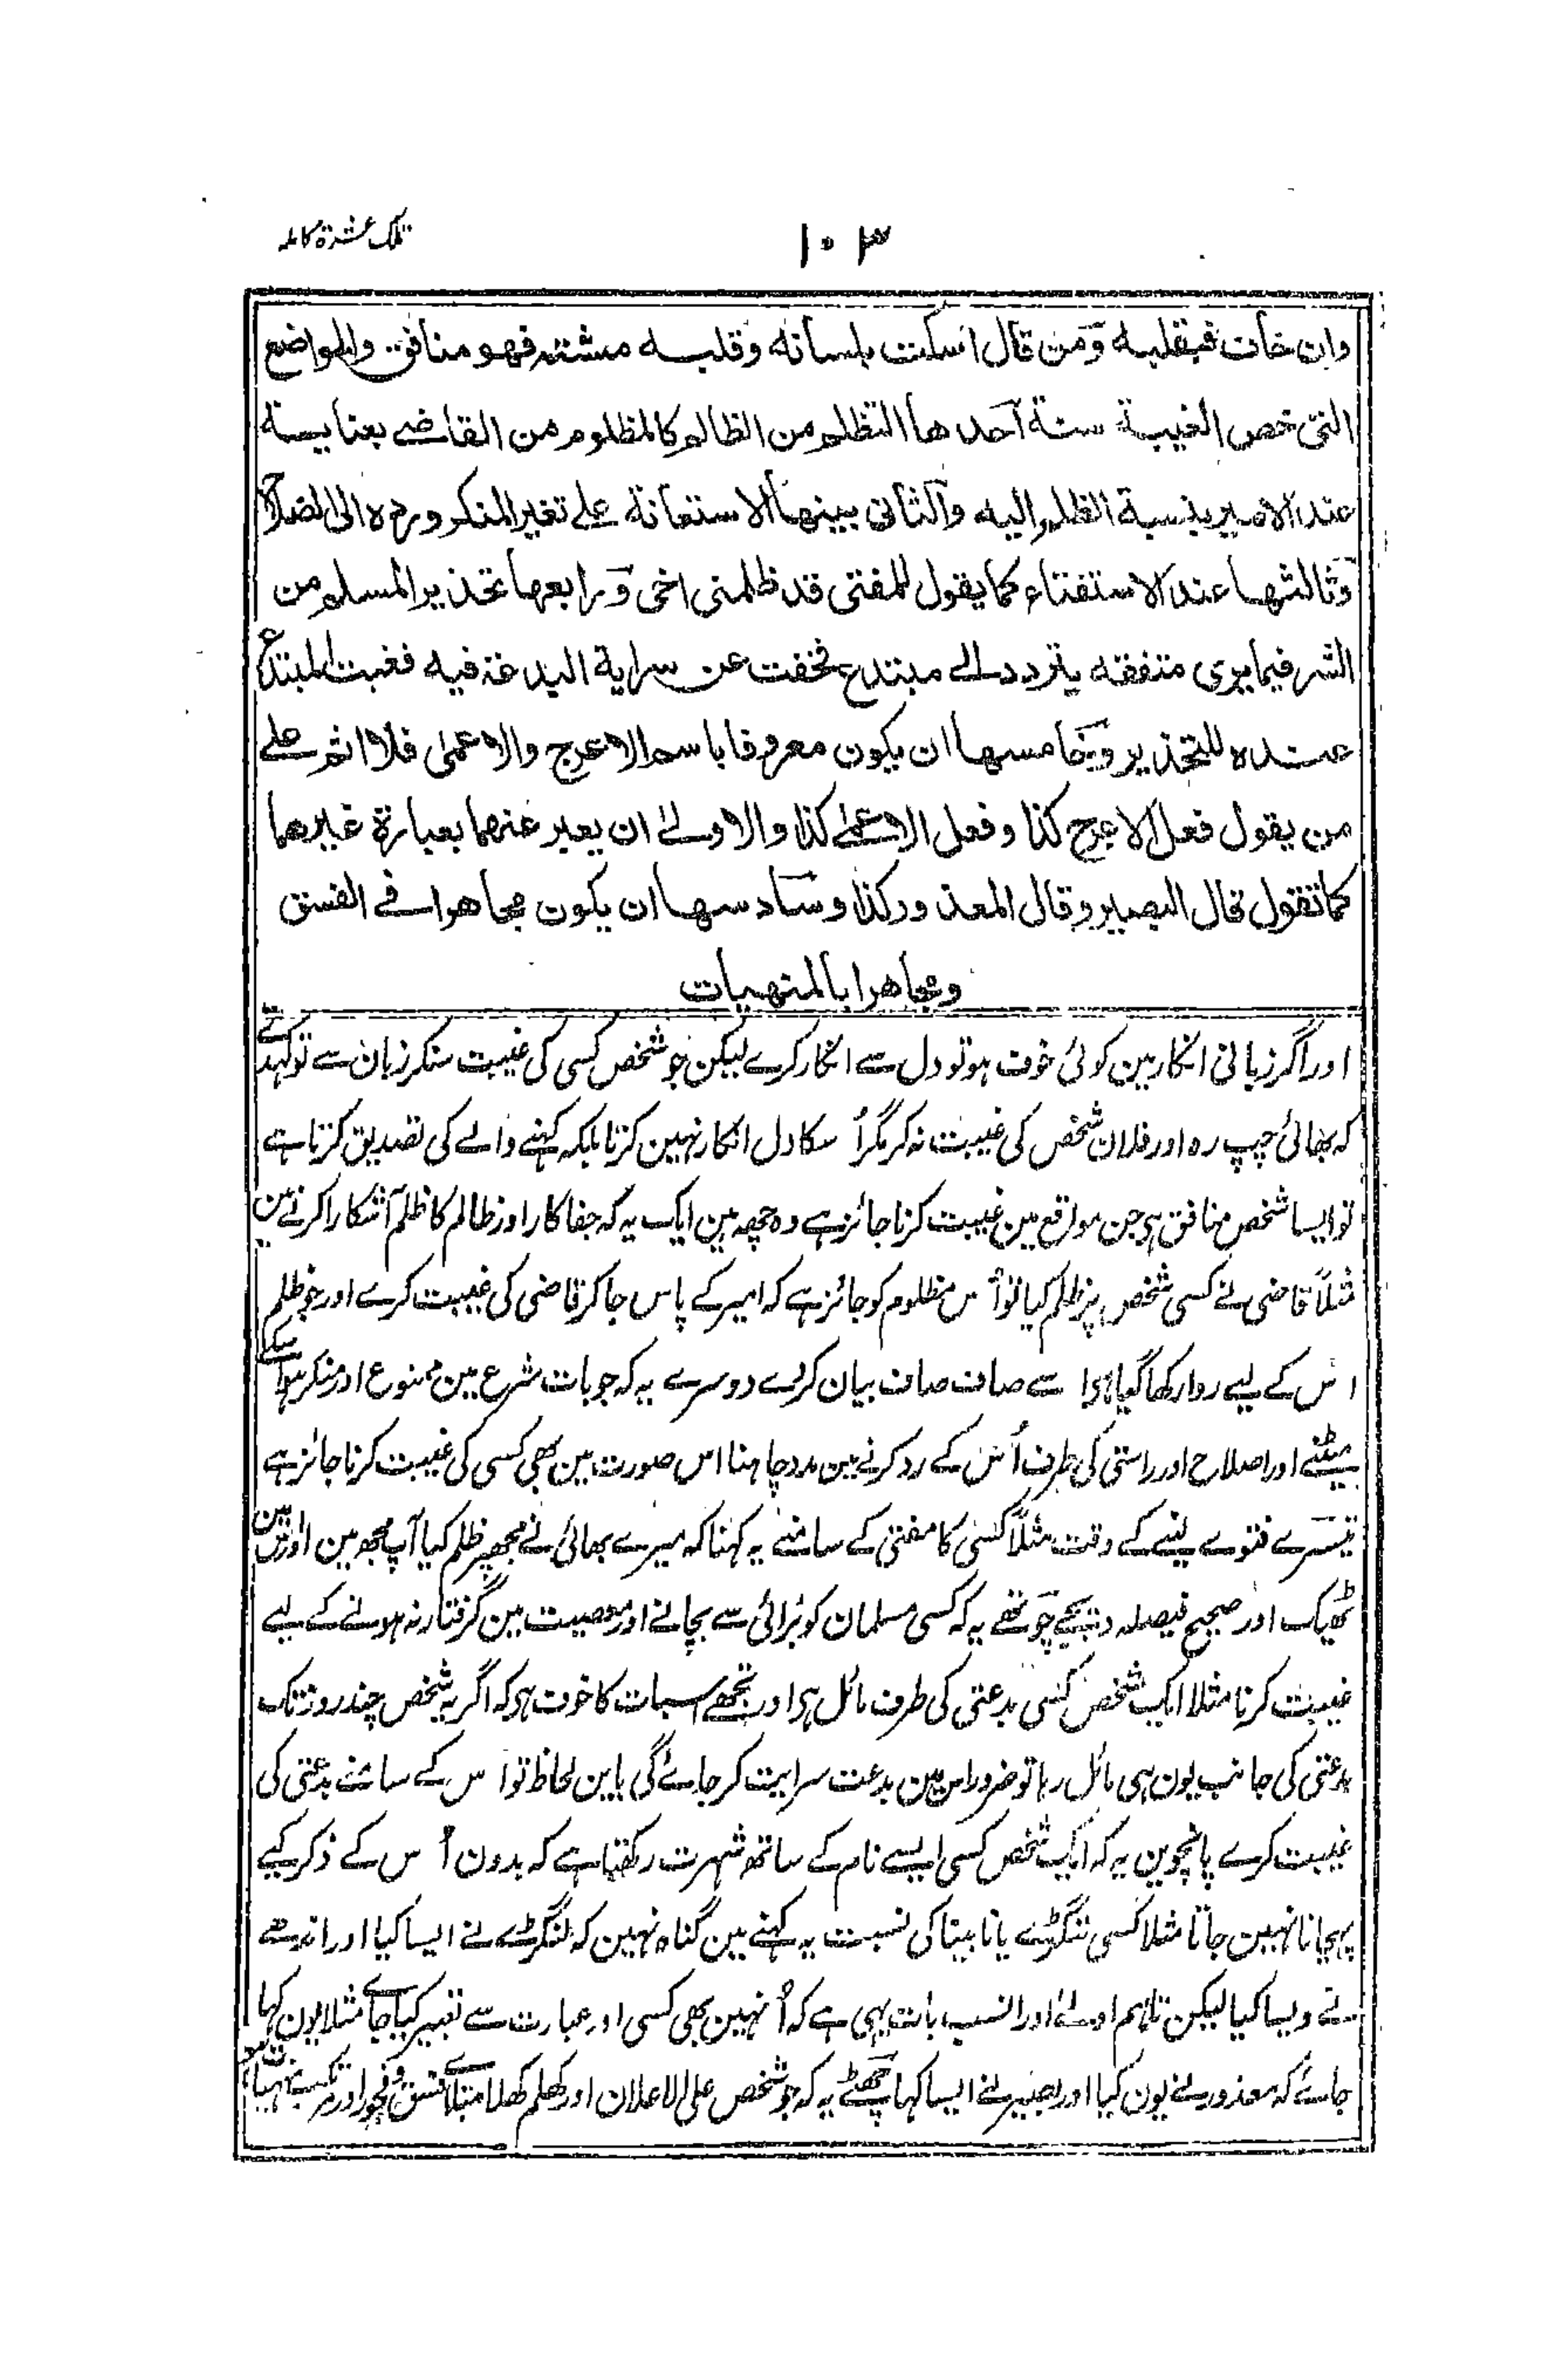 ۱۰۳
تلک عشرة کاملہ
وان خاف فبقلبه ومن قال اسکت بلسانه وقلبه مشتہ فهو منافق والمواضع
التی خص الغیبة ستة احدها التظلم من الظالم کالمظلوم من القاضے بعنایبه
عند الامیر بنسبة الظلم الیه والثانی بینها الاستعانة علے تغیر المنکر ورده الی الصلاح
وثالثها عند الاستفتاء کما یقول للمفتی قد ظلمنی اخی ورابعها تحذیر المسلم من
الشر فیما یری متفقه یتردد الے مبتدع فخفت عن سرایة البدعة فیه فغبت المبتدع
عنده للتحذیر وخامسها ان یکون معروفا باسم الاعرج والاعمی فلا اثم علے
من یقول فعل الاعرج کذا وفعل الاعمے کذا والاولے ان یعبر عنهما بعبارة غیرهما
کما تقول قال البصیر وقال المعذور کذا وسادسها ان یکون مجاهرا فے الفسق
ومجاهرا بالمنهیات
اور اگر زبانی انکار مین کوئی خوف ہو تو دل سے انکار کرے لیکن جو شخص کسی کی غیبت سنکر زبان سے تو کہدے
کہ بھائی چپ رہ اور فلان شخص کی غیبت نہ کر مگر اُسکا دل انکار نہین کرتا بلکہ کہنے والے کی تصدیق کرتا ہے
تو ایسا شخص منافق ہی جن مواقع مین غیبت کرنا جائز ہے وہ چھہ ہین ایک یہ کہ جفا کار اور ظالم کا ظلم آشکارا کرنے مین
مثلاً قاضی نے کسی شخص پر ظلم کیا تو اُس مظلوم کو جائز ہے کہ امیر کے پاس جا کر قاضی کی غیبت کرے اور جو ظلم
اس کے لیے روا رکھا گیا ہو اُسے صاف صاف بیان کردے دوسرے یہ کہ جو بات شرع مین ممنوع اور منکر ہو اُسکے
میٹنے اور اصلاح اور راستی کی طرف اُس کے رد کرنے مین مدد چاہنا اس صورت مین بھی کسی کی غیبت کرنا جائز ہے
تیسرے فتوے لینے کے وقت مثلاً کسی کا مفتی کے سامنے یہ کہنا کہ میرے بھائی نے مجھپر ظلم کیا آپ مجھ مین اور اس مین
ٹھیک اور صحیح فیصلہ دیجیے چوتھے یہ کہ کسی مسلمان کو برائی سے بچانے اور معصیت مین گرفتار نہ ہونے کے لیے
غیبت کرنا مثلا ایک شخص کسی بدعتی کی طرف مائل ہو اور تجھے اسبات کا خوف ہو کہ اگر یہ شخص چند روز تک
بدعتی کی جانب یون ہی مائل رہا تو ضرور اس مین بدعت سرایت کر جائے گی باین لحاظ تو اس کے سامنے بدعتی کی
غیبت کرے پانچوین یہ کہ ایک شخص کسی ایسے نام کے ساتھ شہرت رکھتا ہے کہ بدون اُس کے ذکر کیے
پہچانا نہین جاتا مثلا کسی لنگڑے یا نابینا کی نسبت یہ کہنے مین گناہ نہین کہ لنگڑے نے ایسا کیا اور اندھے
نے ویسا کیا لیکن تاہم اولےٰ اور انسب بات یہی ہے کہ اُنہین بھی کسی اور عبارت سے تعبیر کیا جائے مثلا یون کہا
جائے کہ معذور نے یون کیا اور بصیر نے ایسا کہا چھٹے یہ کہ جو شخص علی الاعلان اور کھلم کھلا مبتلائے فسق و فجور اور مرتکب منہیات ہو